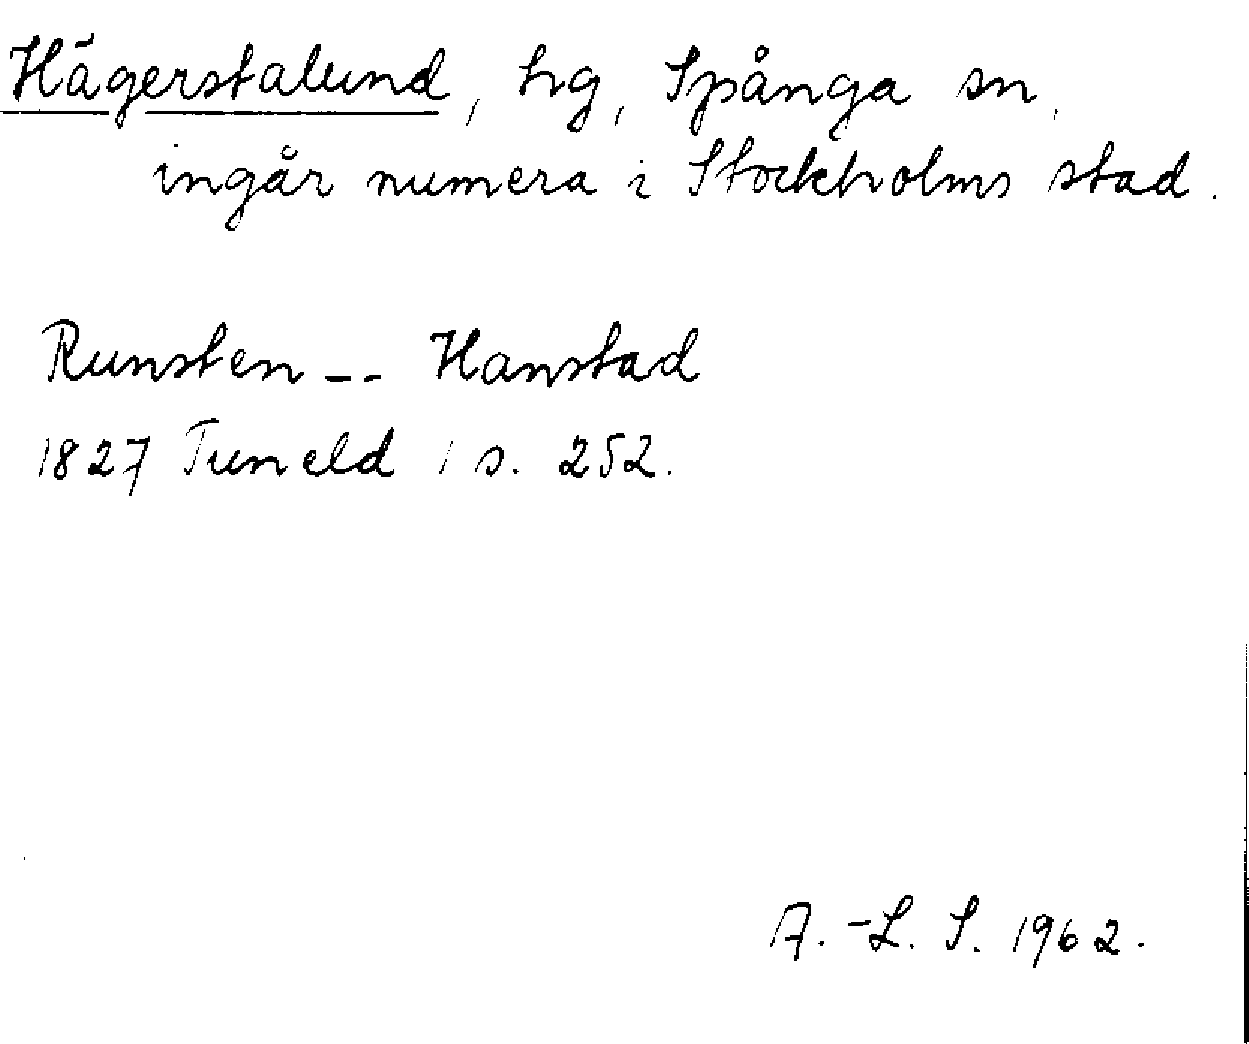 Hägerstalund, hg, Spånga sn,
ingår numera i Stockholms stad.
Runsten -- Hanstad
1827 Tuneld 1 s. 252.
A.-L. S. 1962.